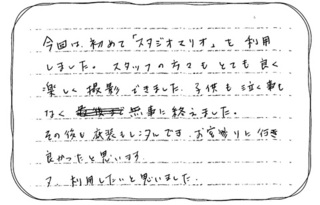 今回は、初めて「スタジオマリオ」を利用
しました。スタッフの方々もとても良く
楽しく撮影できました。子供も泣く事も
なく 無事に終えました。
その後も衣装もレンタルです お宮参りに行き
良かったと思います
又、利用したいと思いました。